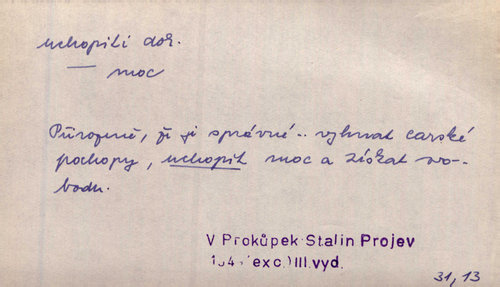 uchopiti dok.
moc
Přirozeně, že je správné.. vyhnat carské
pochopy, uchopit moc a získat svo-
bodu.
V Prokůpek Stalin Projev
194 (exc.) III.vyd.
31,13